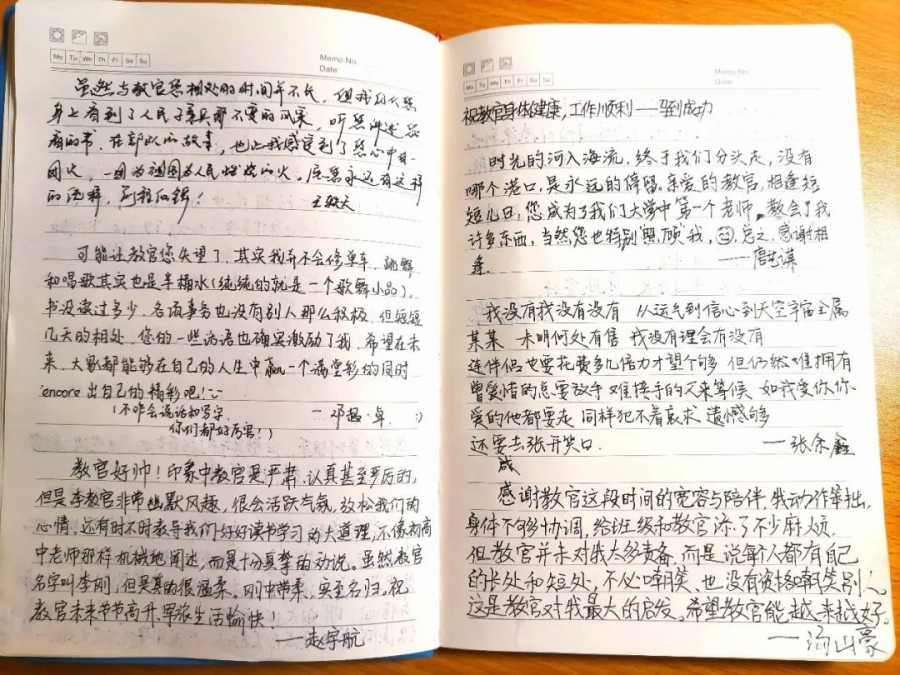 Mo Tu We Th Fr Sa Su
Memo No.
Date
虽然与教官您相处的时间并不长,但我们从您
身上看到了人民子弟兵那不变的风采,听您讲述
看的书,在部队的故事,也让我感受到了您心中有一
团火,一团为祖国为人民燃烧的火。
可能让教官您失望了,其实我并不会修单车,跳舞
和唱歌其实也是半桶水(纯纯的就是一个歌舞小品),
书没读过多少,各项事务也没有别人那么积极,但短短
几天的相处,您的一些话语也确实激励了我,希望在未
来,大家都能够在自己的人生中赢一个满堂彩的同时
encore出自己的精彩吧!
(不咋会说话和写字
— 邓超卓 :)
你们都好厉害!)
教官好帅!印象中教官是严肃、认真甚至严厉的,
但是李教官非常幽默风趣,很会活跃气氛,放松我们的
心情。还有时不时教导我们好好读书学习的大道理,不像初高
中老师那样机械地阐述,而是十分真挚的劝说。虽然教官
名字叫李刚,但是真的很温柔。刚中带柔,实至名归。祝
教官未来节节高升,军旅生活愉快!
——赵宇航
Mo Tu We Th Fr Sa Su
Memo No.
Date
祝教官身体健康,工作顺利——马到成功
时光的河入海流,终于我们分头走,没有
哪个港口,是永远的停留。亲爱的教官,相逢短
短几日,您成为了我们大学中第一个老师,教会了我
许多东西,当然您也特别"照顾"我,总之,感谢相
逢。
我没有我没有没有 从运气到信心到天空宇宙全属
某某 未明何处有售 我没有理会有没有
连伴侣也要花费多几倍力才望个够 但仍然难拥有
曾爱惜的怎要放手 难接手的又来等候 如我爱你你
爱的他都要走 同样犯不着哀求 遗憾够
还要去张开笑口
——张余鑫
感谢教官这段时间的宽容与陪伴,我动作笨拙,
身体不够协调,给班级和教官添了不少麻烦,
但教官并未对我太多责备,而是说每个人都有自己
的长处和短处,不必嘲笑、也没有资格嘲笑别人。
这是教官对我最大的启发。希望教官能越来越好。
——汤山豪